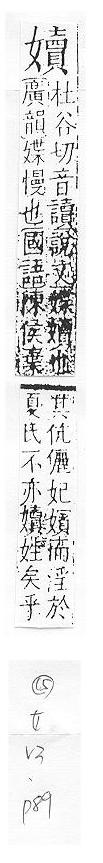 嬻
杜谷切音讀說文媟嬻也
廣韻媟慢也國語陳侯棄
其伉儷妃嬪而淫於
夏氏不亦嬻姓矣乎
⑮
女
V3
、
p89